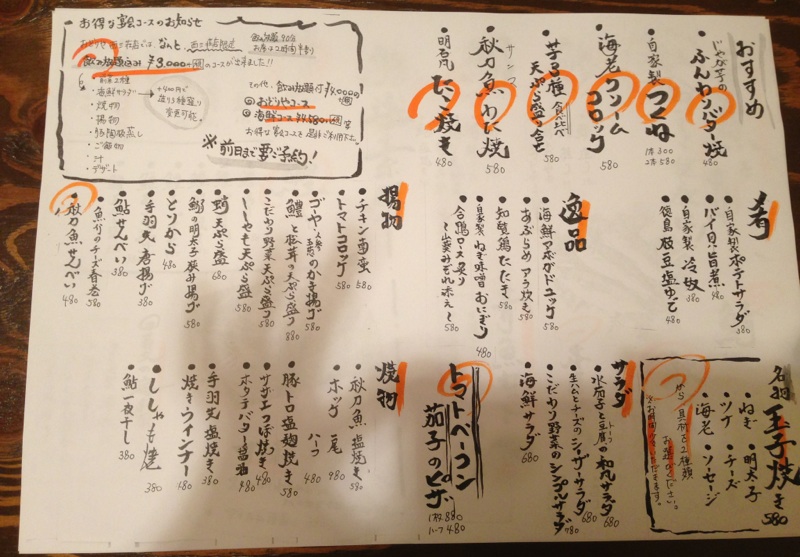 お得な宴会コースのお知らせ
飲み放題90分
飲み放題込み ¥3,000
のコースが出来ました!!
・海鮮サラダ
・焼物
・揚物
・ご飯物
・汁
・デザート
その他、飲み放題付 ¥4,000
①おどりやコース
②海鮮コース¥4,580
※前日まで要ご予約!
おすすめ
じゃが芋のふんわりバター焼 480
自家製つくね
1本300
2本580
海老クリームコロッケ 580
芋三種 食べ比べ
天ぷら盛り合せ 580
秋刀魚わた焼 580
サンマ
明石風たこ焼き 480
肴
・自家製ポテトサラダ 380
・バイ貝旨煮 480
・自家製 冷奴 380
・徳島 枝豆塩ゆで 480
逸品
・海鮮アボガドユッケ 580
・あぶらめ アラ炊き 580
・知覧鶏たたき 580
・自家製ねぎ味噌おにぎり 480
・合鴨ロース炙り 580
揚物
・チキン南蛮 580
・トマトコロッケ 580
・ゴーヤのかき揚げ 580
・鱧と松茸の天ぷら盛り 880
・こだわり野菜天ぷら盛り 580
・ししゃも天ぷら盛 580
・蛸天ぷら盛 680
・鰯の明太子挟み揚げ 580
・とりから 480
・手羽先唐揚げ 380
・鮎せんべい 380
・魚介のチーズ春巻 580
・秋刀魚せんべい 480
名物 玉子焼き 580
・ねぎ ・明太子
・ツナ ・チーズ
・海老 ・ソーセージ
から具材を2種類
お選びください。
サラダ
・水茄子と豆腐の和風サラダ 680
・生ハムとチーズのシーザーサラダ 680
・こだわり野菜のシンプルサラダ 780
・海鮮サラダ 680
トマトベーコン
茄子のピザ
1枚 880
ハーフ 480
焼物
・秋刀魚塩焼き 580
・ホッケ 一尾 980
ハーフ 480
・豚トロ塩麹焼き 580
・サザエつぼ焼き 480
・ホタテバター醤油 480
・手羽先塩焼き 380
・焼きウインナー 480
・ししゃも焼 380
・鮎一夜干し 380